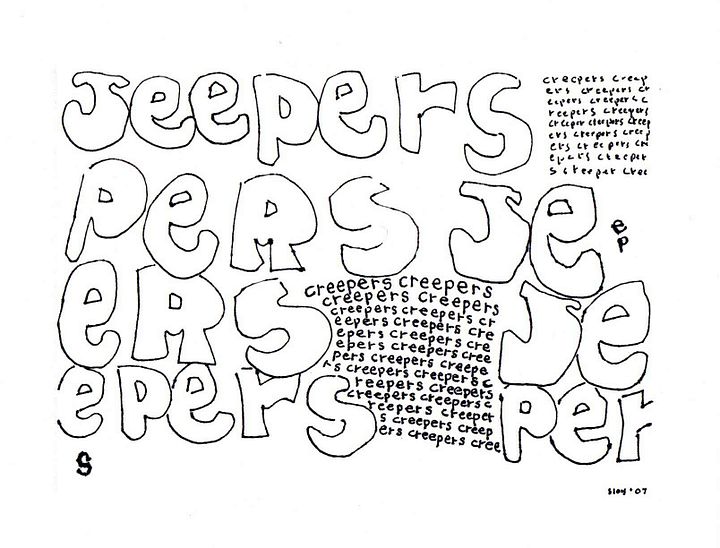 Jeepers
creepers creep
ers creepers cr
eepers creepers c
reepers creepers
creeper creepers creep
ers creepers creep
ers creepers cre
epers creeper
s creeper cree
pers Je
ep
ers
creepers creepers
creepers creepers
creepers creepers cr
eepers creepers cre
epers creepers cre
epers creepers cree
pers creepers creepe
rs creepers creepers c
reepers creepers
creepers creepers c
reepers creeper
s creepers creep
ers creepers cree
Je
epers
per
s
sloy '07